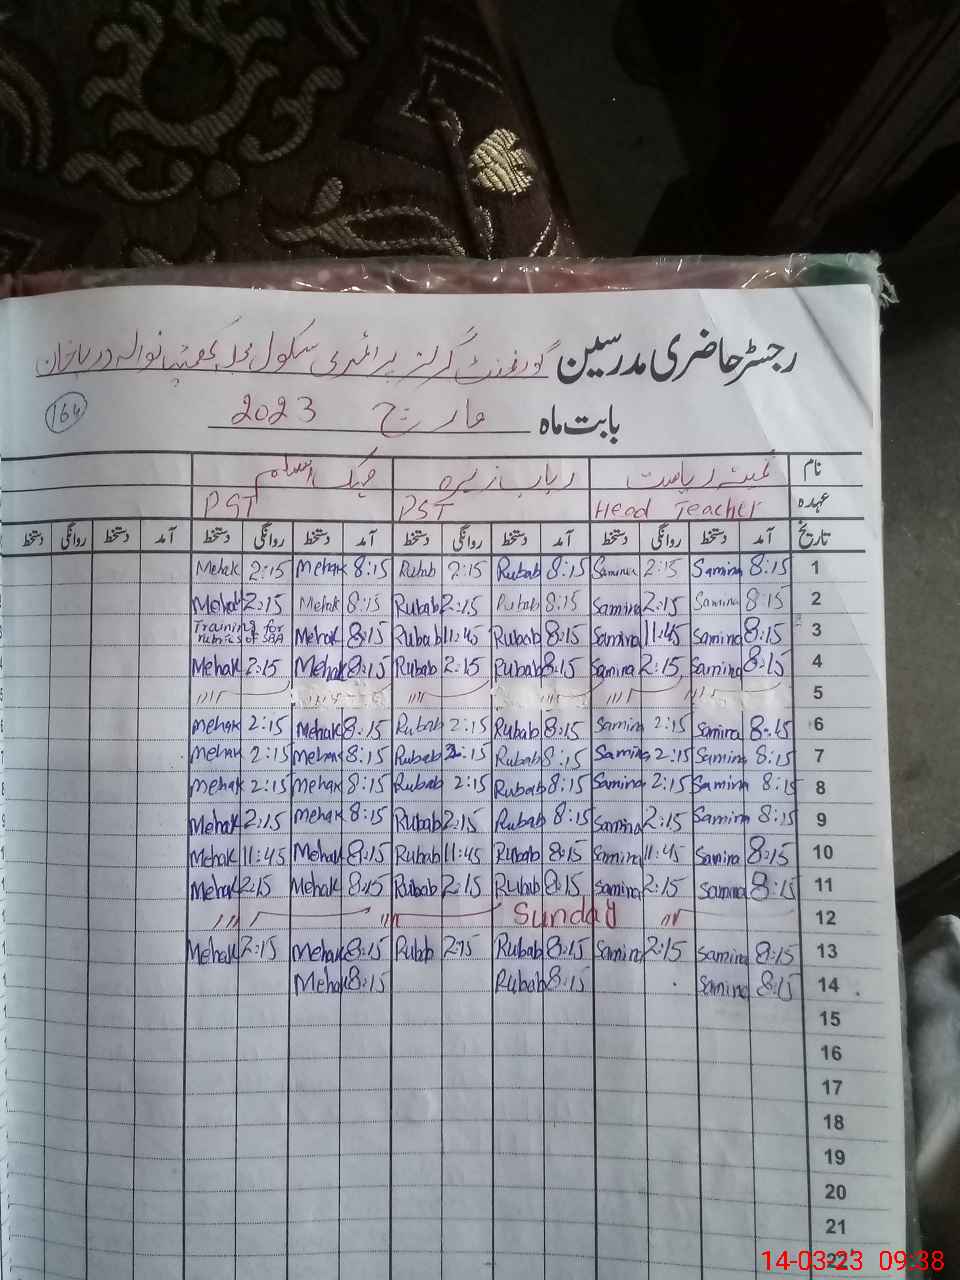 رجسٹر حاضری مدرسین گورنمنٹ گرلز پرائمری سکول نوالہ دریاخان
بابت ماہ مارچ 2023
164
نام ثمینہ ریاست رباب زہرہ مہک اسلم
عہدہ Head Teacher PST PST
تاریخ آمد دستخط روانگی دستخط آمد دستخط روانگی دستخط آمد دستخط روانگی دستخط آمد دستخط روانگی دستخط
1 8:15 Samina 2:15 Samina 8:15 Rubab 2:15 Rubab 8:15 Mehak 2:15 Mehak
2 8:15 Samina 2:15 Samina 8:15 Rubab 2:15 Rubab 8:15 Mehak 2:15 Mehak
3 8:15 Samina 11:45 Samina 8:15 Rubab 11:45 Rubab 8:15 Mehak Training for rubrics of SBA
4 8:15 Samina 2:15 Samina 8:15 Rubab 2:15 Rubab 8:15 Mehak 2:15 Mehak
5
6 8:15 Samina 2:15 Samina 8:15 Rubab 2:15 Rubab 8:15 Mehak 2:15 Mehak
7 8:15 Samina 2:15 Samina 8:15 Rubab 2:15 Rubab 8:15 Mehak 2:15 Mehak
8 8:15 Samina 2:15 Samina 8:15 Rubab 2:15 Rubab 8:15 Mehak 2:15 Mehak
9 8:15 Samina 2:15 Samina 8:15 Rubab 2:15 Rubab 8:15 Mehak 2:15 Mehak
10 8:15 Samina 11:45 Samina 8:15 Rubab 11:45 Rubab 8:15 Mehak 11:45 Mehak
11 8:15 Samina 2:15 Samina 8:15 Rubab 2:15 Rubab 8:15 Mehak 2:15 Mehak
12 Sunday
13 8:15 Samina 2:15 Samina 8:15 Rubab 2:15 Rubab 8:15 Mehak 2:15 Mehak
14 8:15 Samina 8:15 Rubab 8:15 Mehak
15
16
17
18
19
20
21
22
14-03-23 09:38